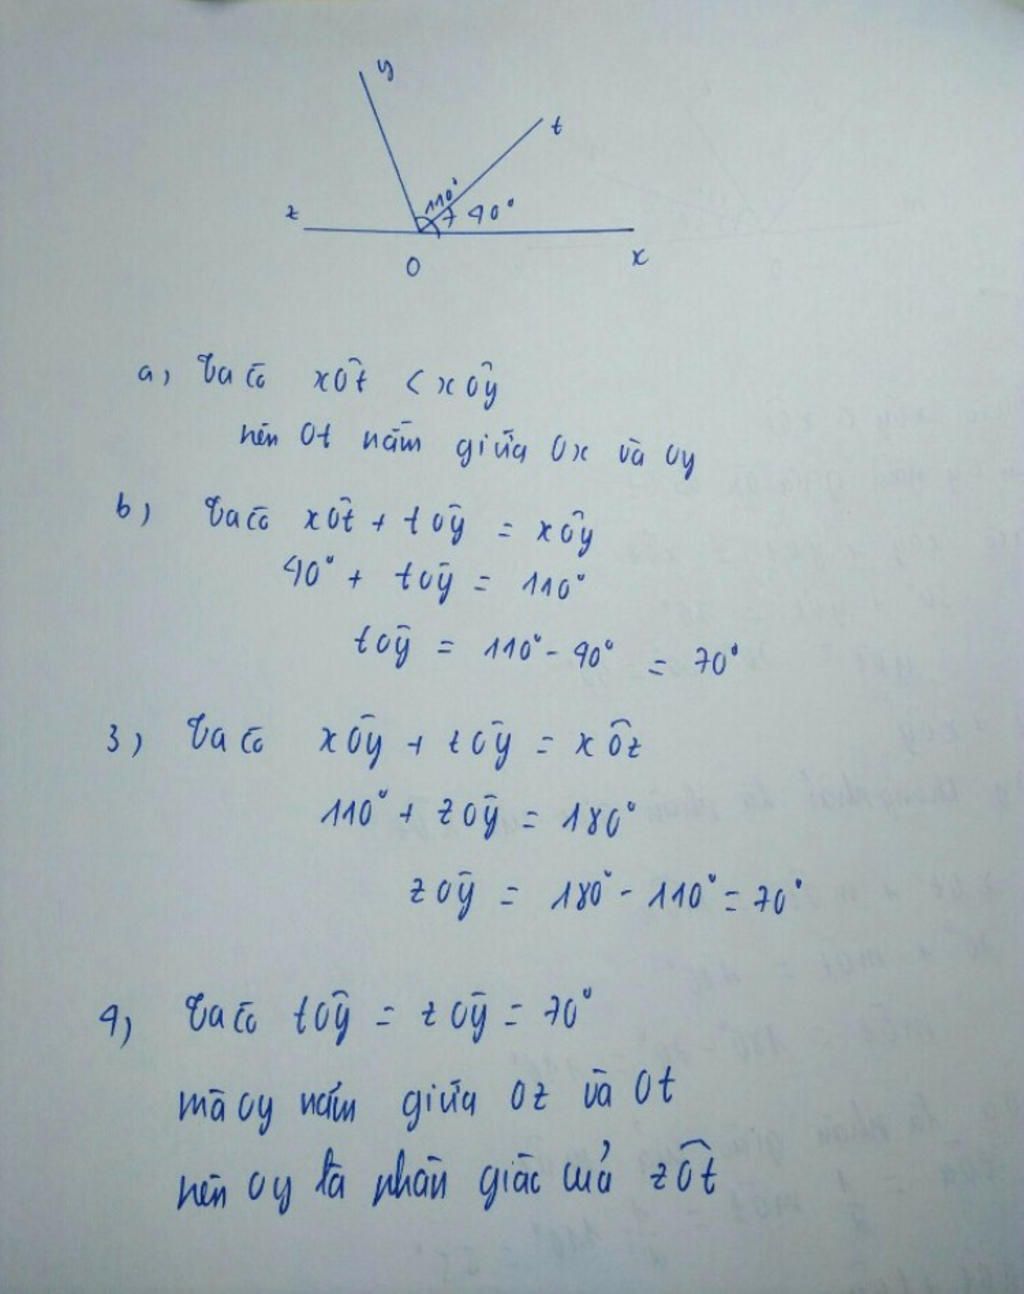 y
t
110°
40°
z
O
x
a, Ta có xÔt < xÔy
nên Ot nằm giữa Ox và Oy
b) Ta có xÔt + tÔy = xÔy
40° + tÔy = 110°
tÔy = 110° - 40° = 70°
3) Ta có xÔy + zÔy = xÔz
110° + zÔy = 180°
zÔy = 180° - 110° = 70°
4) Ta có tÔy = zÔy = 70°
mà Oy nằm giữa Oz và Ot
nên Oy là phân giác của zÔt